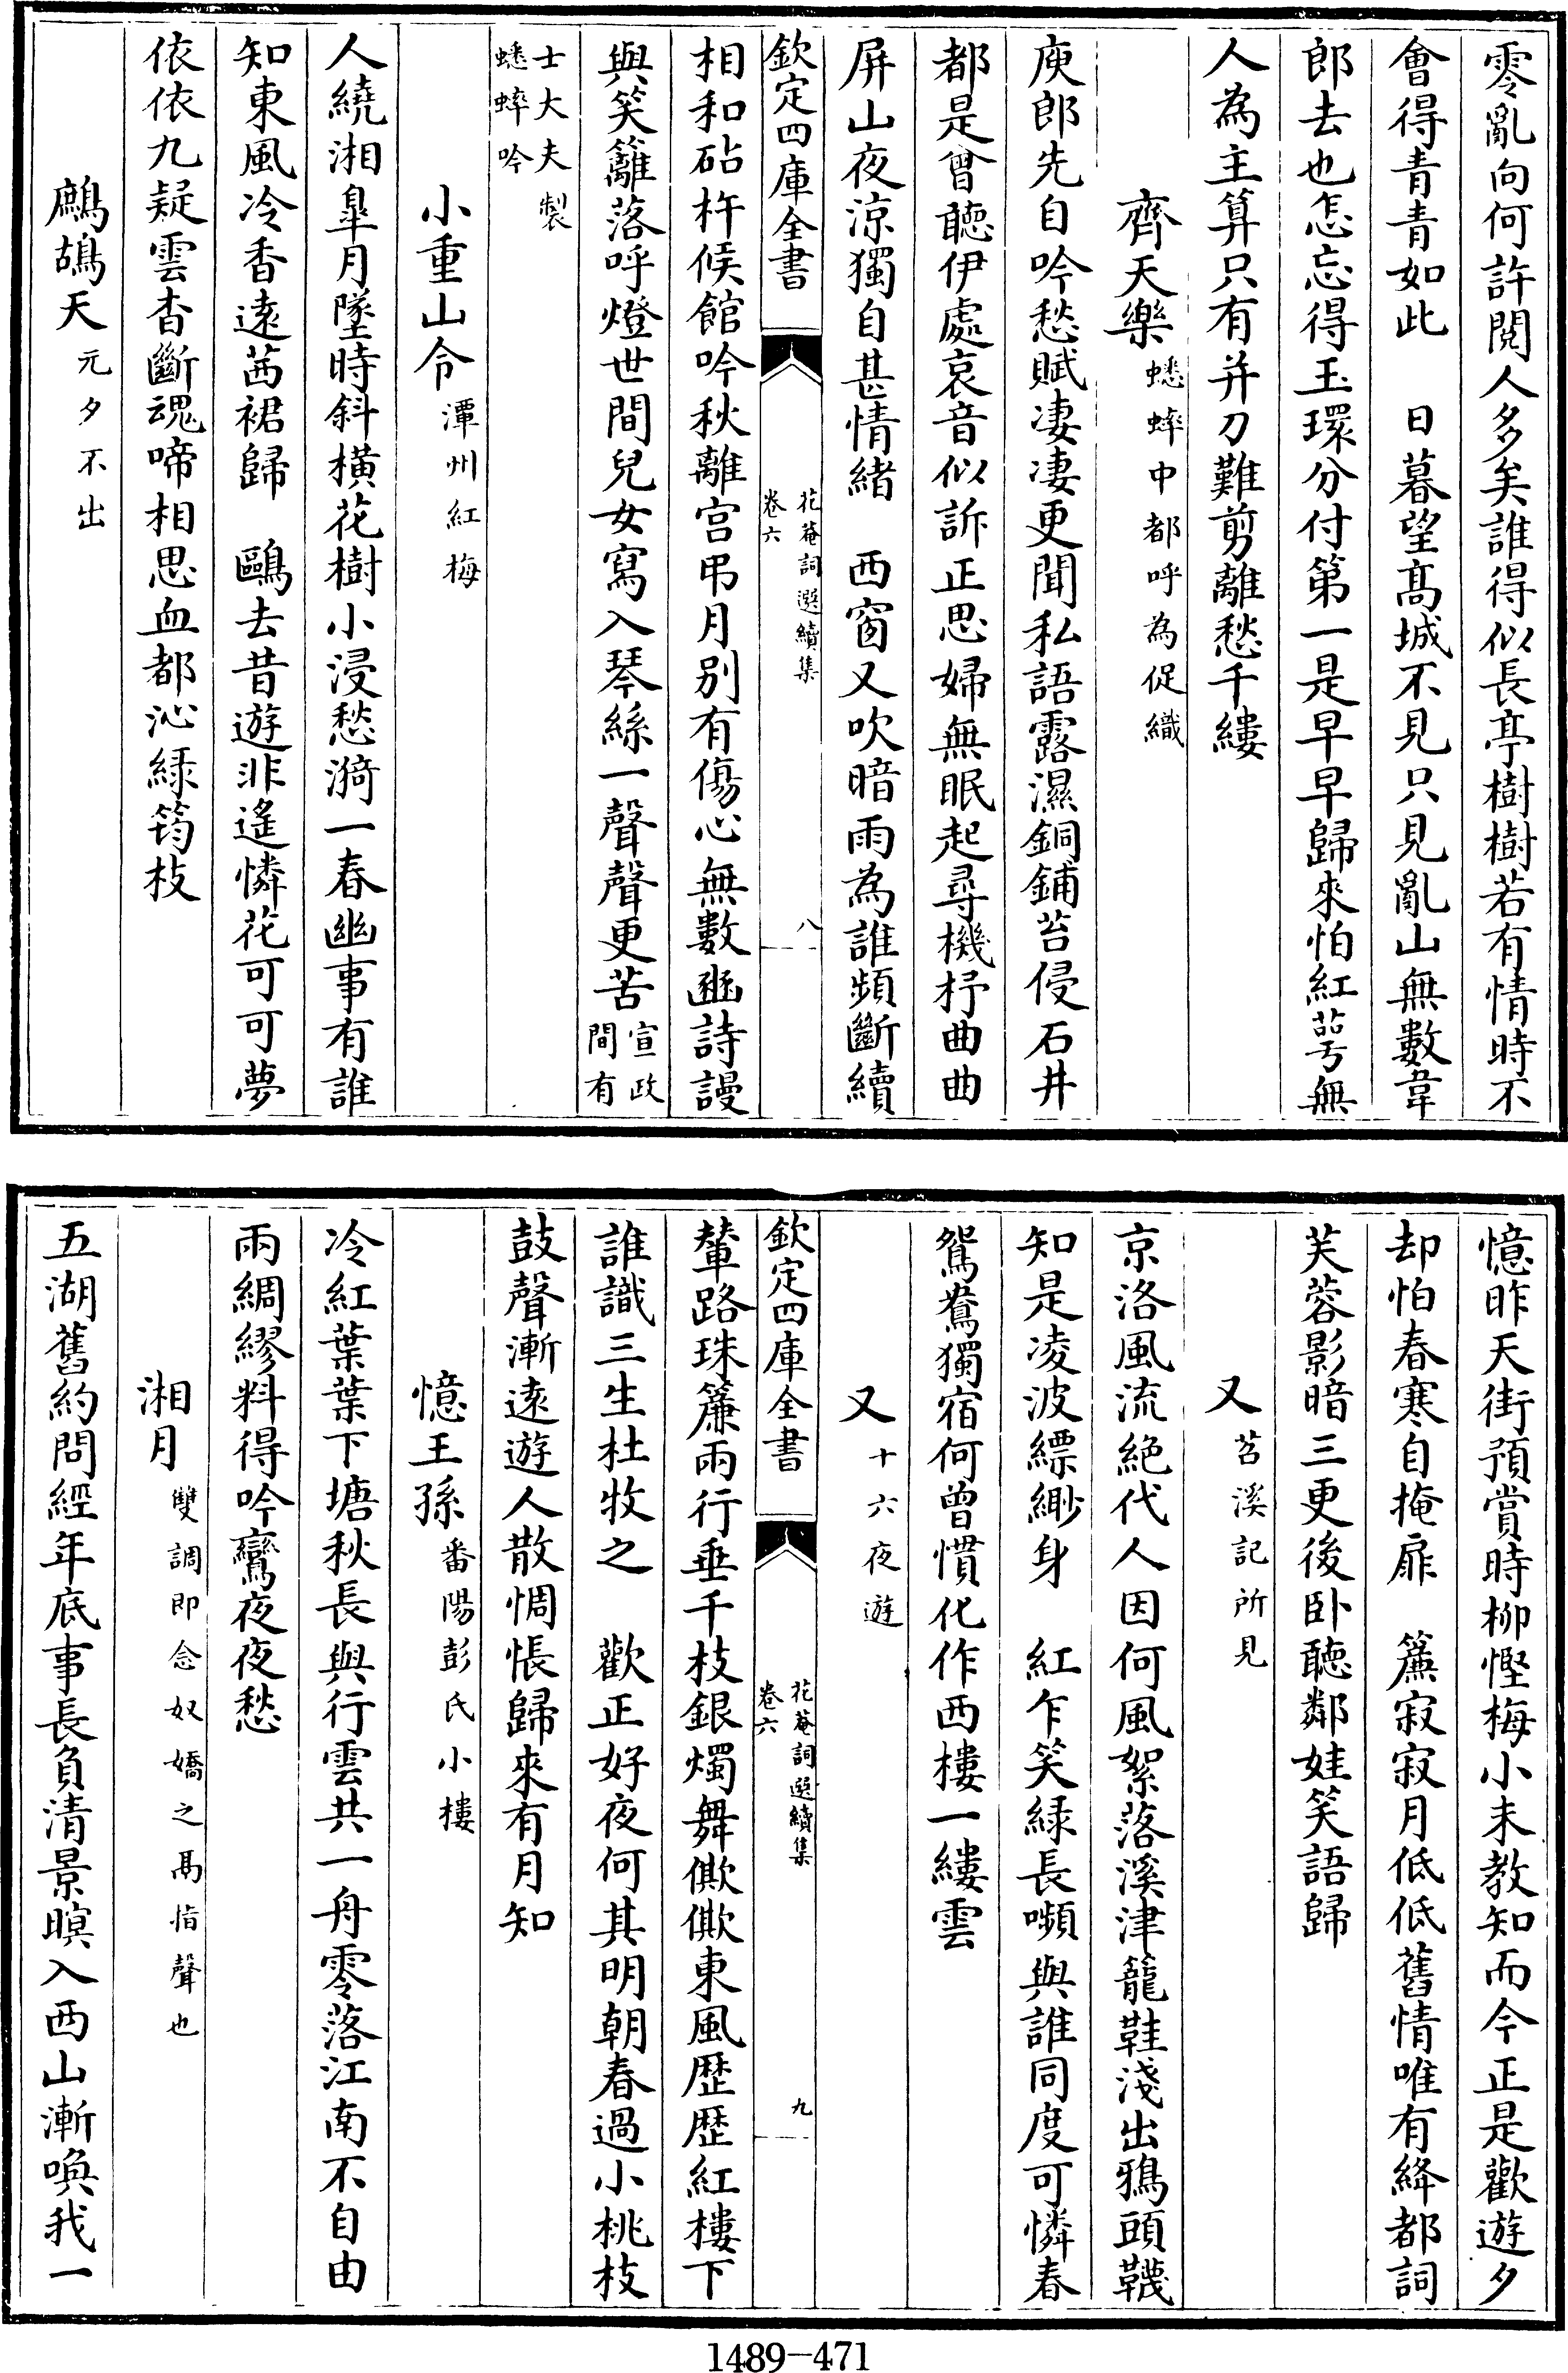 零亂向何許閱人多矣誰得似長亭樹樹若有情時不
會得青青如此　日暮望髙城不見只見亂山無數韋
郎去也怎忘得玉環分付第一是早早歸來怕紅萼無
人為主算只有并刀難剪離愁千縷
齊天樂蟋蟀中都呼為促織
庾郎先自吟愁賦凄凄更聞私語露濕銅鋪苔侵石井
都是曾聽伊處哀音似訴正思婦無眠起尋機杼曲曲
屏山夜涼獨自甚情緒　西窗又吹暗雨為誰頻斷續
欽定四庫全書
花菴詞選續集
卷六
八
相和砧杵候館吟秋離宮弔月别有傷心無數豳詩謾
與笑籬落呼燈世間兒女寫入琴絲一聲聲更苦宣政
間有
士大夫製
蟋蟀吟
小重山令潭州紅梅
人繞湘臯月墜時斜橫花樹小浸愁漪一春幽事有誰
知東風冷香遠茜裙歸　鷗去昔遊非遙憐花可可夢
依依九疑雲杳斷魂啼相思血都沁緑筠枝
鷓鴣天元夕不出
憶昨天街預賞時柳慳梅小未教知而今正是歡遊夕
却怕春寒自掩扉　簾寂寂月低低舊情唯有絳都詞
芙蓉影暗三更後卧聽鄰娃笑語歸
又苕溪記所見
京洛風流絶代人因何風絮落溪津籠鞋淺出鴉頭韈
知是凌波縹緲身　紅乍笑緑長嚬與誰同度可憐春
鴛鴦獨宿何曾慣化作西樓一縷雲
又十六夜遊
欽定四庫全書
花菴詞選續集
卷六
九
輦路珠簾兩行垂千枝銀燭舞僛僛東風歴歴紅樓下
誰識三生杜牧之　歡正好夜何其明朝春過小桃枝
鼓聲漸遠遊人散惆悵歸來有月知
憶王孫番陽彭氏小樓
冷紅葉葉下塘秋長與行雲共一舟零落江南不自由
兩綢繆料得吟鸞夜夜愁
湘月雙調即念奴嬌之髙指聲也
五湖舊約問經年底事長負清景暝入西山漸喚我一
1489—471